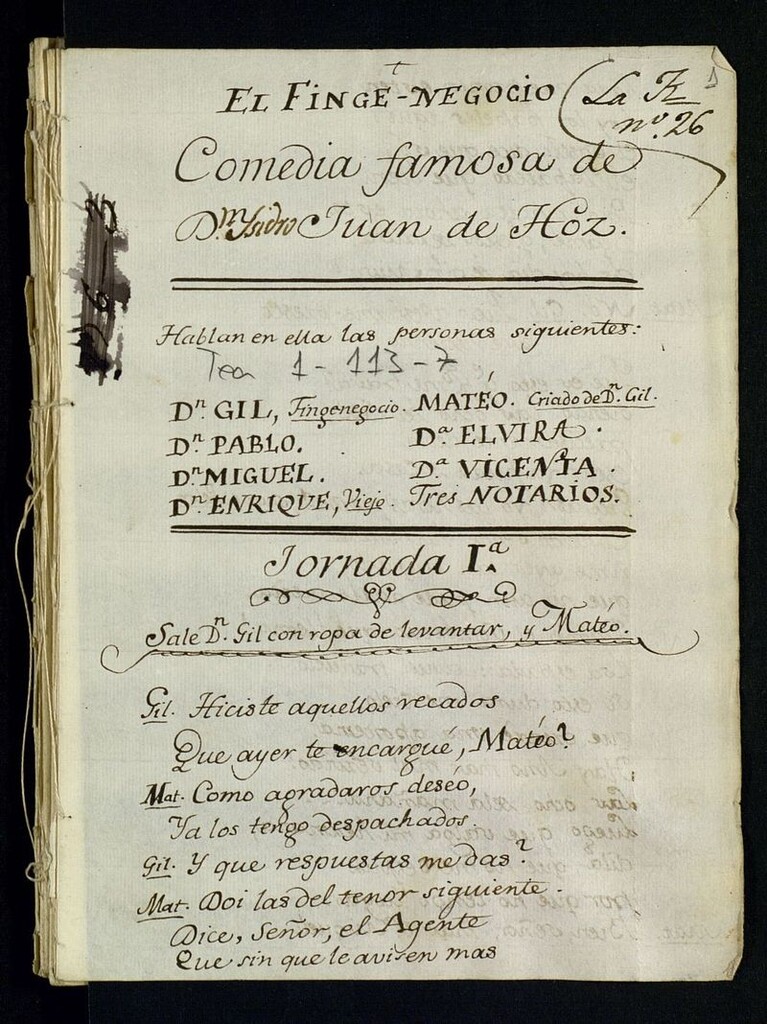 EL FINGE-NEGOCIO
La
nº. 26
Comedia famosa de
D.n Ysidro Juan de Hoz.
Hablan en ella las personas siguientes:
Tea 1-113-7
D.n GIL, Fingenegocio. MATÉO. Criado de D.n Gil.
D.n PABLO. D.a ELVIRA.
D.n MIGUEL. D.a VICENTA.
D.n ENRIQUE, Viejo. Tres NOTARIOS.
Jornada I.a
Sale D.n Gil con ropa de levantar, y Matéo.
Gil. Hiciste aquellos recados
Que ayer te encargué, Matéo?
Mat. Como agradaros deséo,
Ya los tengo despachados.
Gil. Y que respuestas me das?
Mat. Doi las del tenor siguiente.
Dice, Señor, el Agente
Que sin que le avisen mas